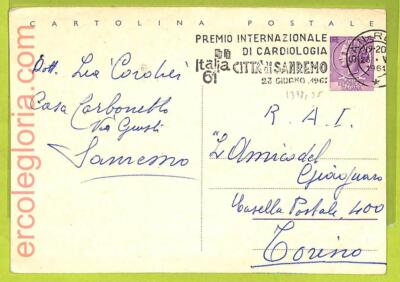 CARTOLINA POSTALE
PREMIO INTERNAZIONALE
DI CARDIOLOGIA
Italia 61
CITTÀ DI SANREMO
23 GIUGNO 1961
Dott. Lia
Casa Carbonetto
Via Giusti
Sanremo
R. A. I.
"L'Amico del
Giaguaro
Casella Postale 400
Torino
ercolegloria.com